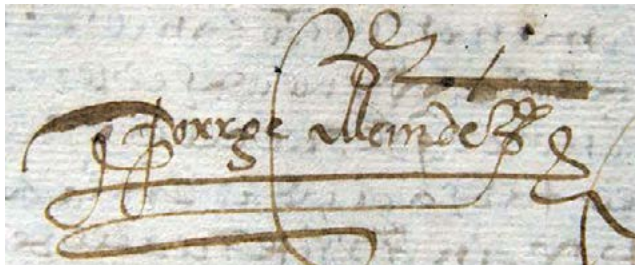 Jorrge Mendez